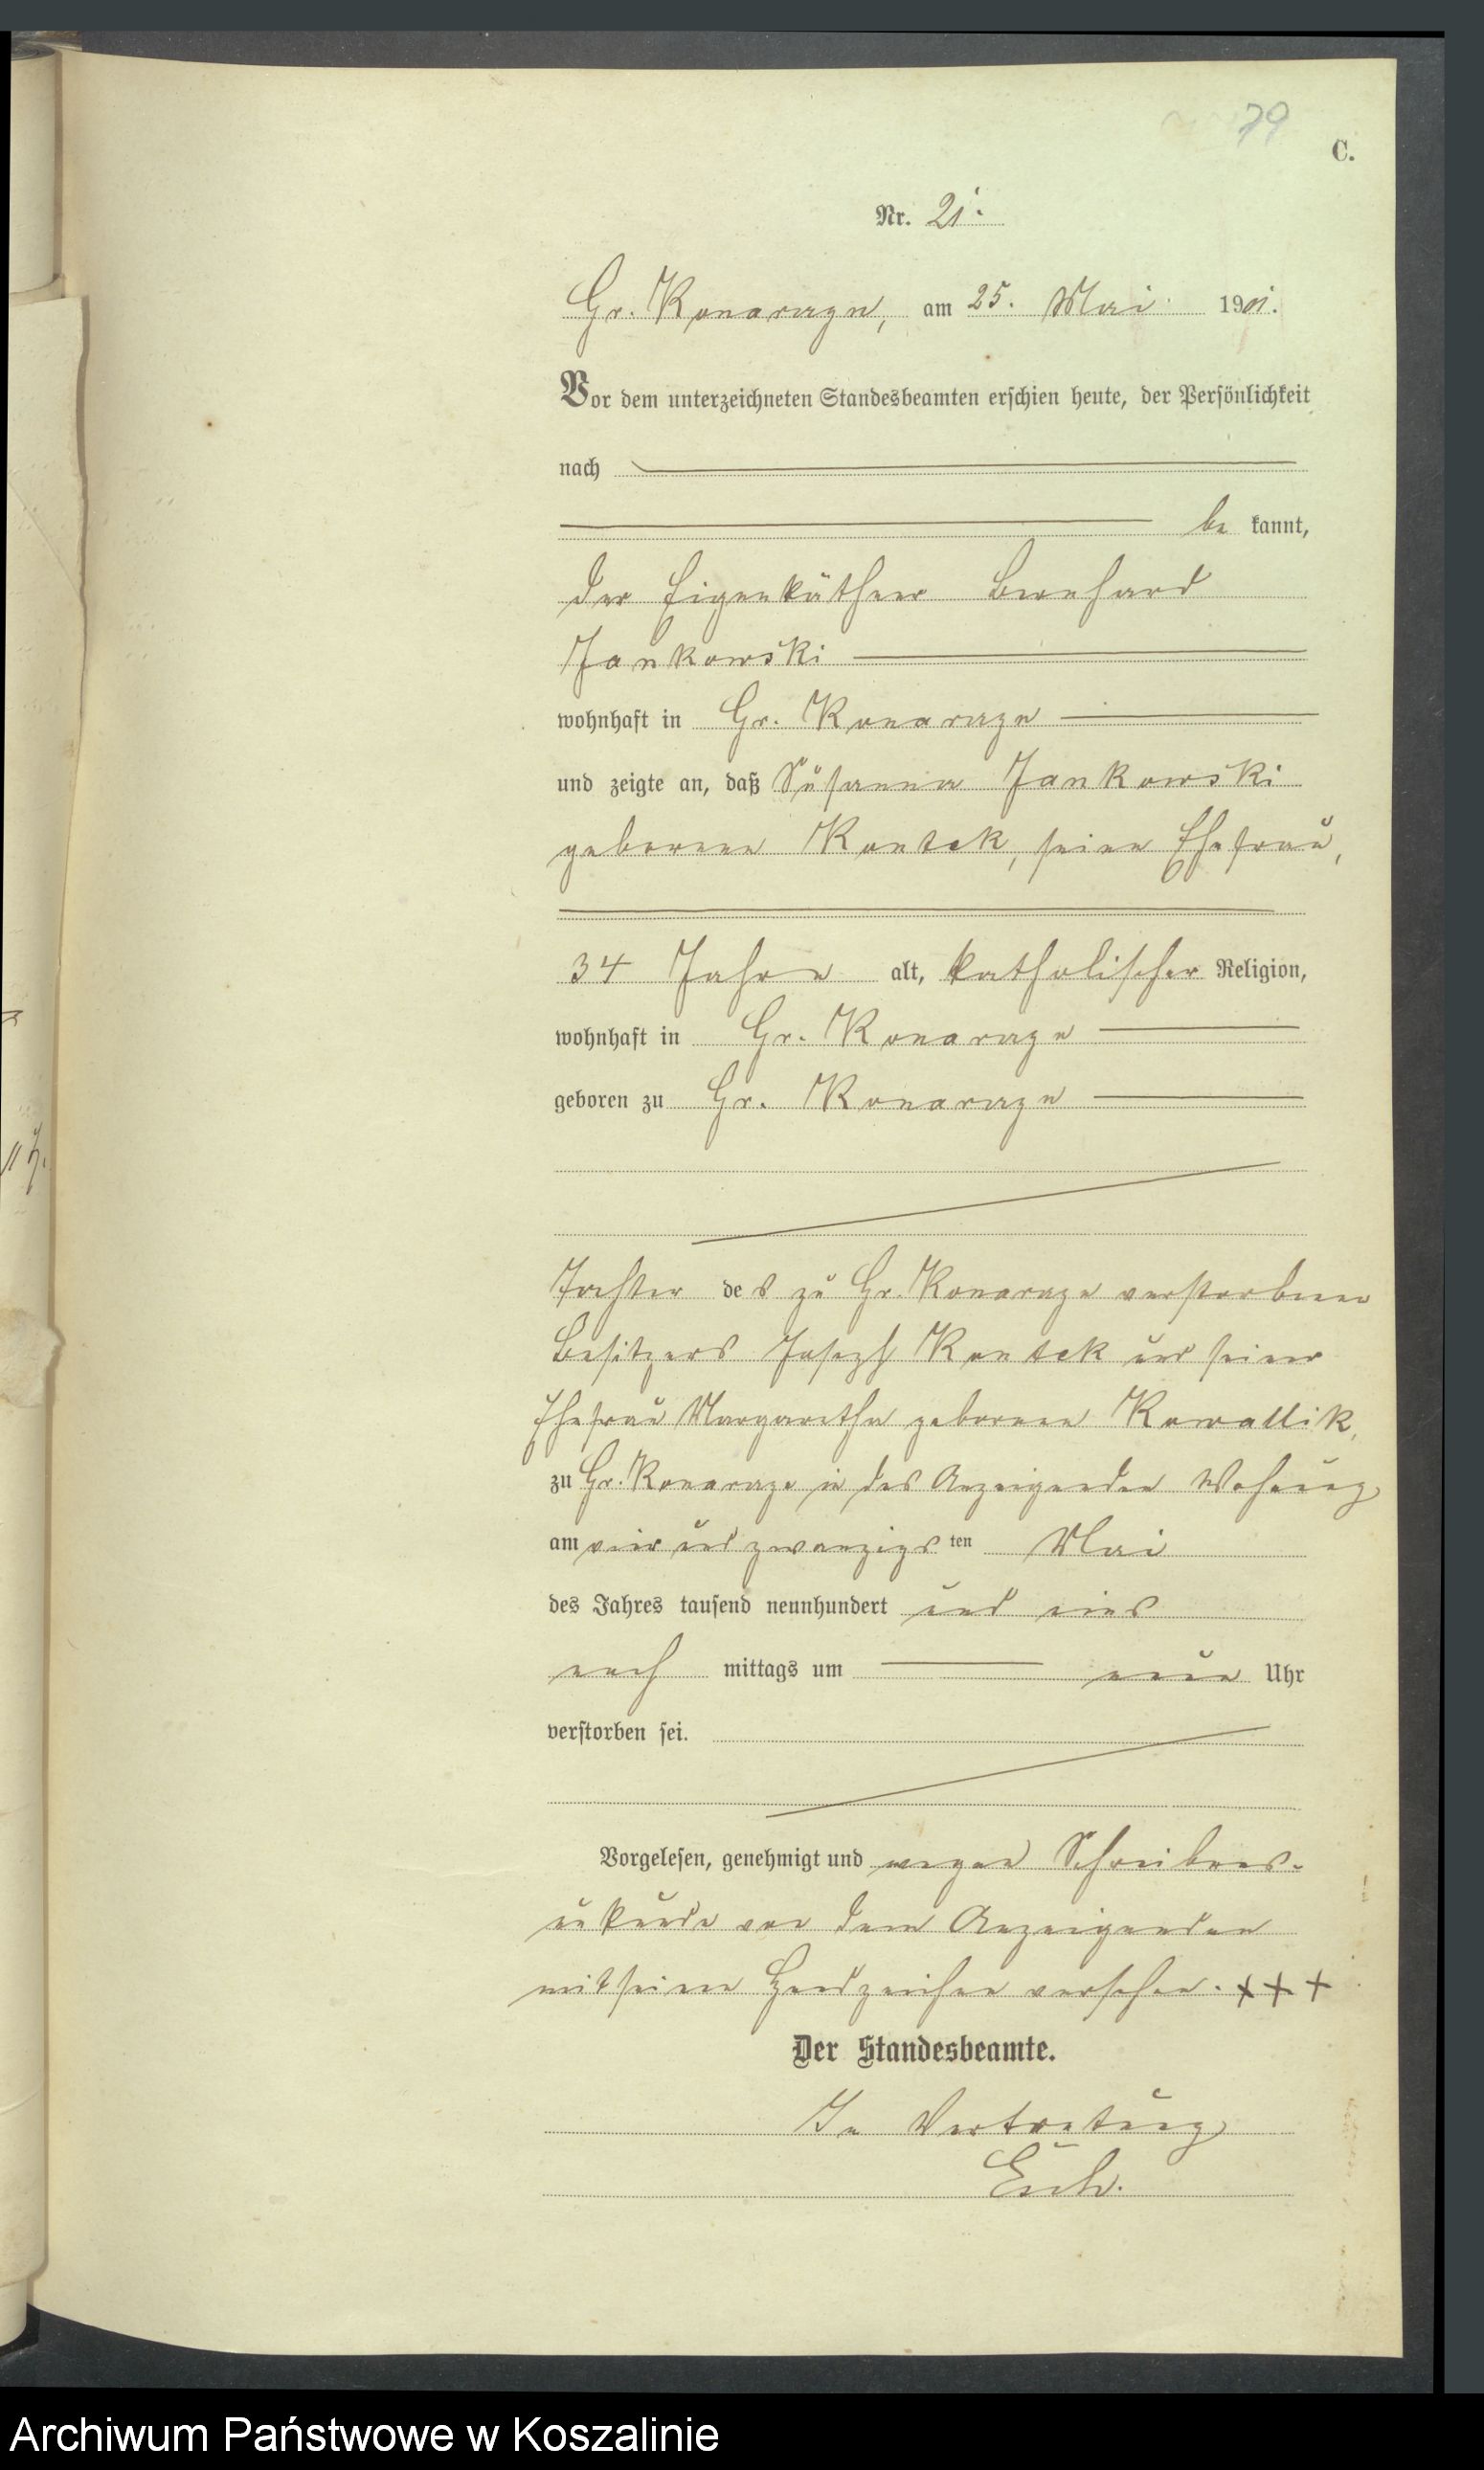 79
C.
Nr. 21.
Gr. Konarczyn, am 25. Mai 1901.
Vor dem unterzeichneten Standesbeamten erschien heute, der Persönlichkeit
nach
be kannt,
der Eigenkäthner Bernhard
Jankowski
wohnhaft in Gr. Konarczyn
und zeigte an, daß Susanna Jankowski
geborene Kontek, seine Ehefrau,
34 Jahre alt, katholischer Religion,
wohnhaft in Gr. Konarczyn
geboren zu Gr. Konarczyn
Tochter des zu Gr. Konarczyn verstorbenen
Besitzers Joseph Kontek und seiner
Ehefrau Margaretha geborene Kowallik,
zu Gr. Konarczyn in des Anzeigenden Wohnung
am vier und zwanzigs ten Mai
des Jahres tausend neunhundert und eins
nach mittags um neun Uhr
verstorben sei.
Vorgelesen, genehmigt und wegen Schreibens-
unkunde von dem Anzeigenden
mit seinen Handzeichen versehen. + + +
Der Standesbeamte.
In Vertretung
Archiwum Państwowe w Koszalinie